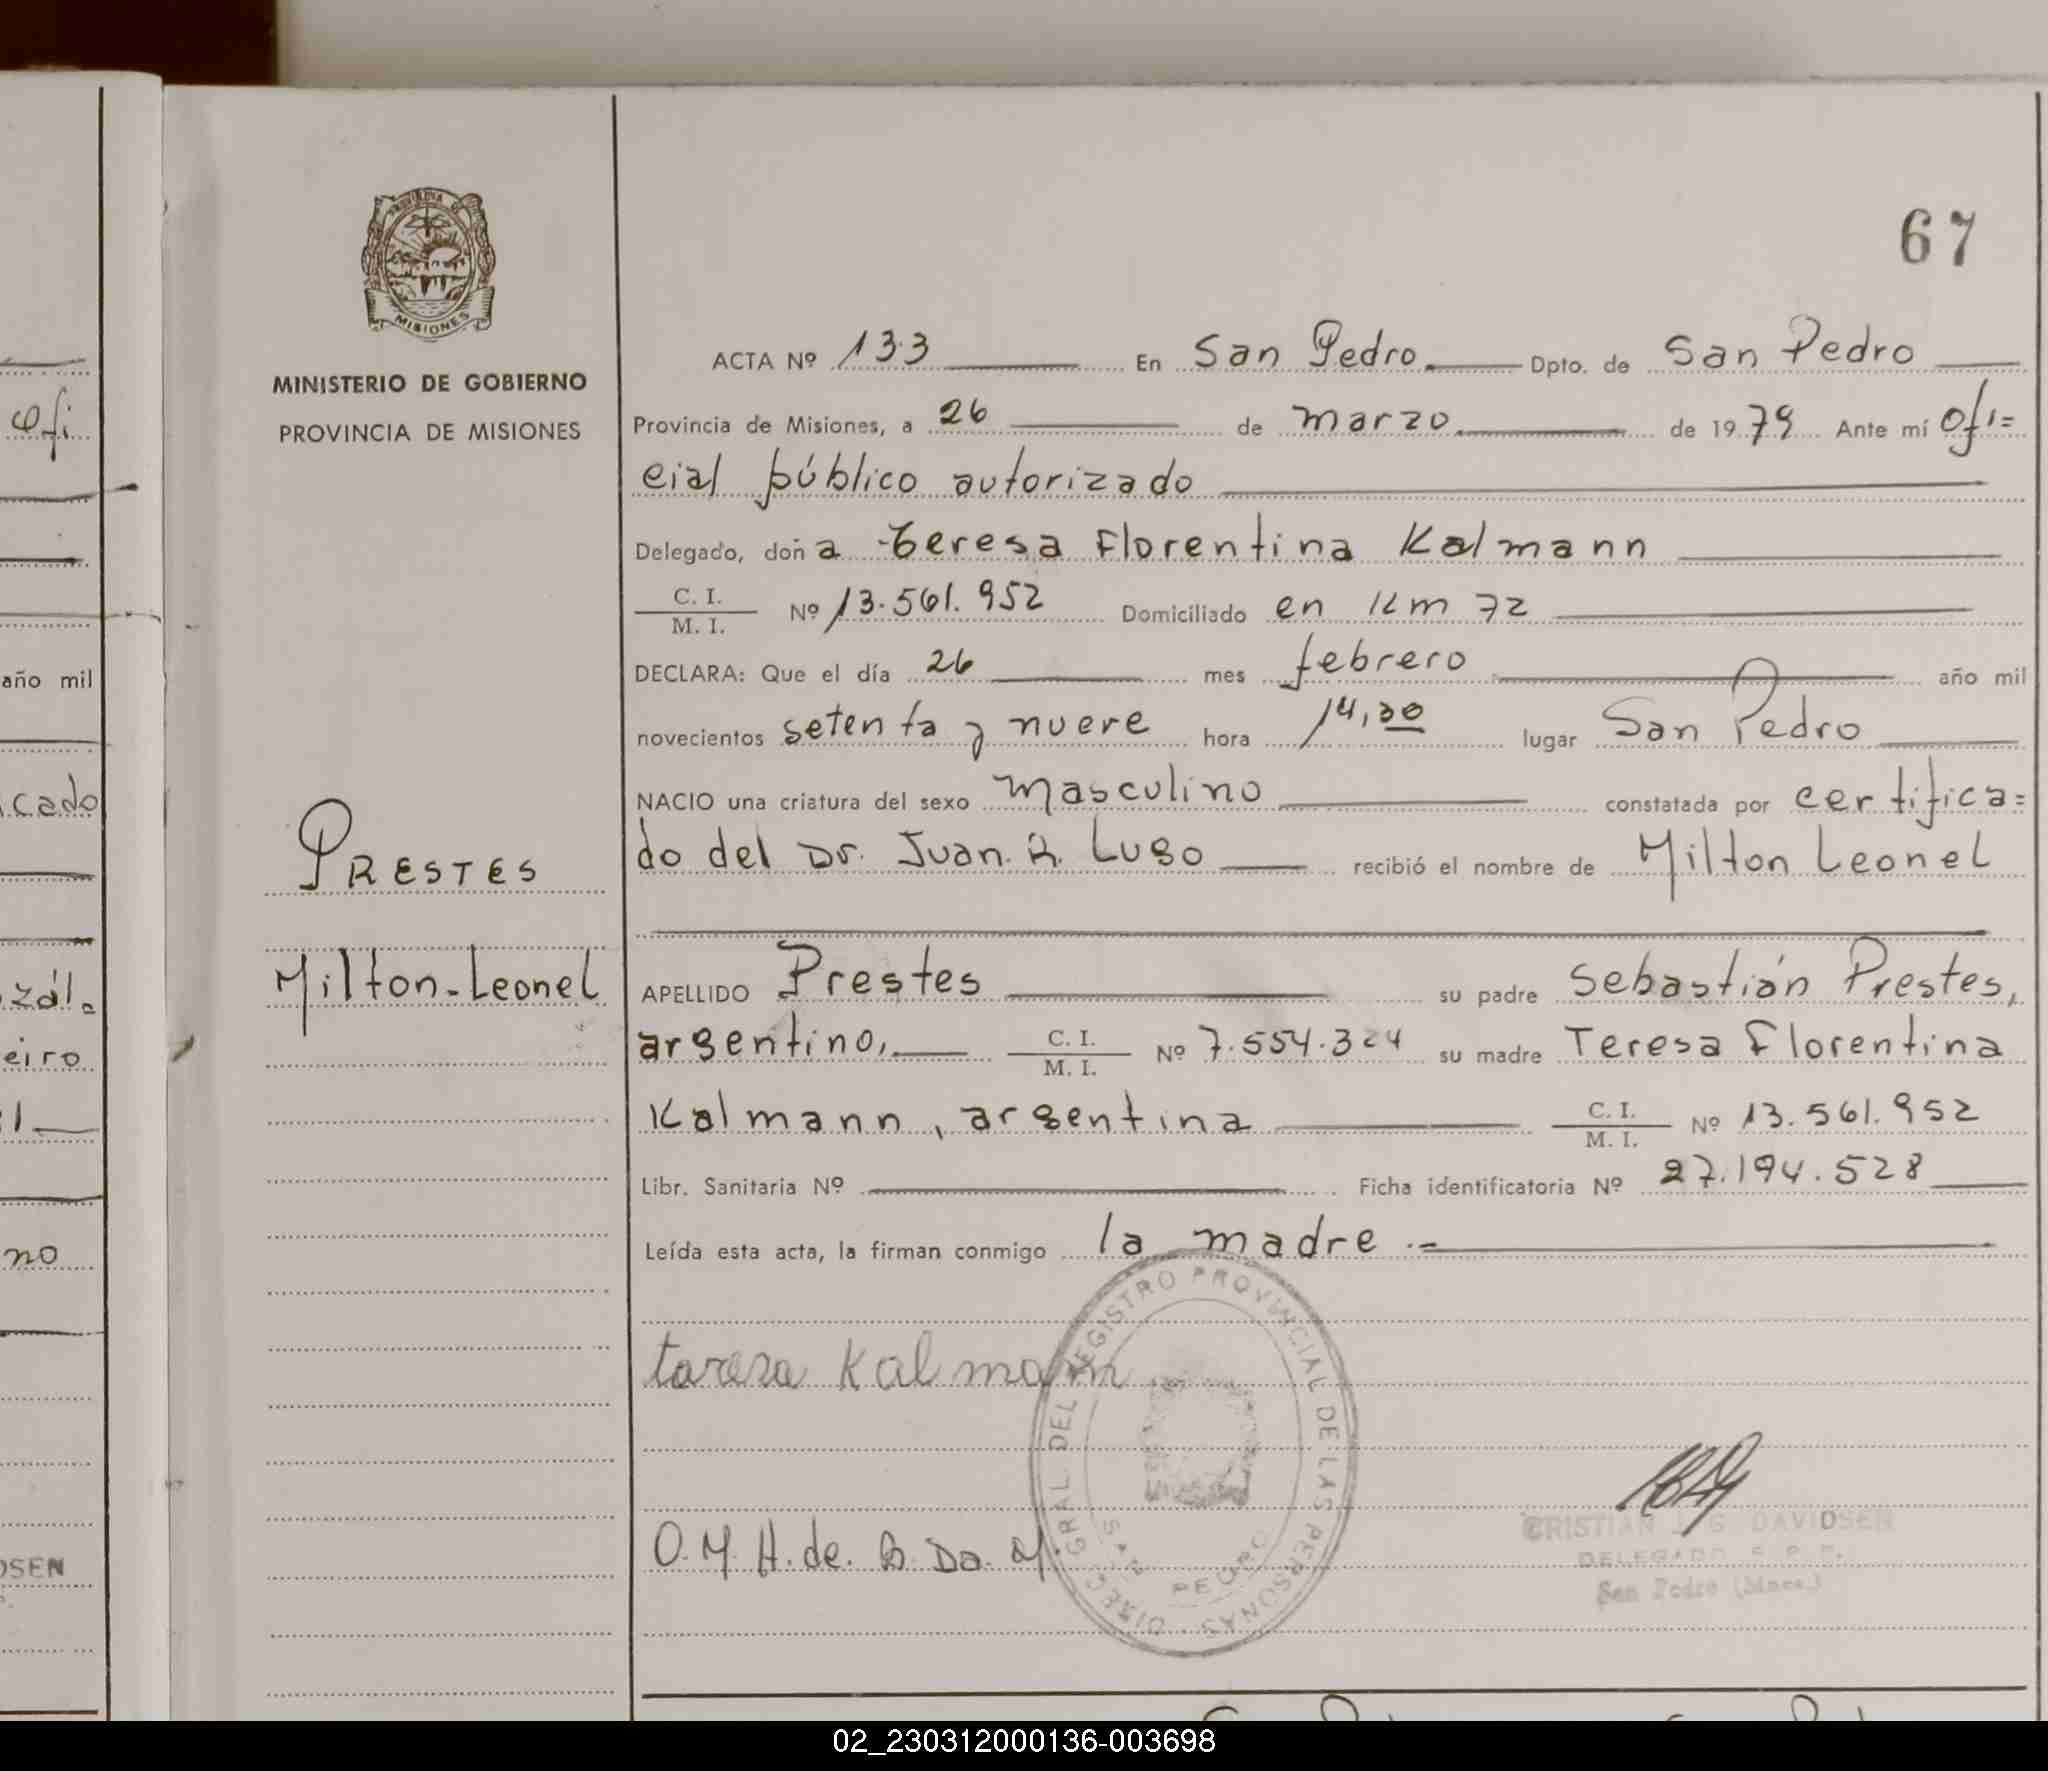 67
MISIONES
MINISTERIO DE GOBIERNO
PROVINCIA DE MISIONES
PRESTES
Milton-Leonel
ACTA Nº 133 En San Pedro. Dpto. de San Pedro
Provincia de Misiones, a 26 de marzo. de 1979 Ante mí Ofi=
cial público autorizado
Delegado, doña Teresa Florentina Kalmann
C. I.
M. I. Nº 13.561.952 Domiciliado en Km 72
DECLARA: Que el día 26 mes febrero año mil
novecientos setenta y nueve hora 14,30 lugar San Pedro
NACIO una criatura del sexo masculino constatada por certifica=
do del Dr. Juan. R. Lugo recibió el nombre de Milton Leonel
APELLIDO Prestes su padre Sebastián Prestes,
argentino, C. I.
M. I. Nº 7.554.324 su madre Teresa Florentina
Kalmann, argentina C. I.
M. I. Nº 13.561.952
Libr. Sanitaria Nº Ficha identificatoria Nº 27.194.528
Leída esta acta, la firman conmigo la madre.-
taresa Kalmann
DIREC. GRAL. DEL REGISTRO PROVINCIAL DE LAS PERSONAS
SAN PEDRO
O.M.H.de.B.Da.M.
CRISTIAN J. G. DAVIDSEN
DELEGADO R. P. P.
San Pedro (Mnes.)
Ofi
año mil
cado
zál=
eiro
no
DSEN
02_230312000136-003698